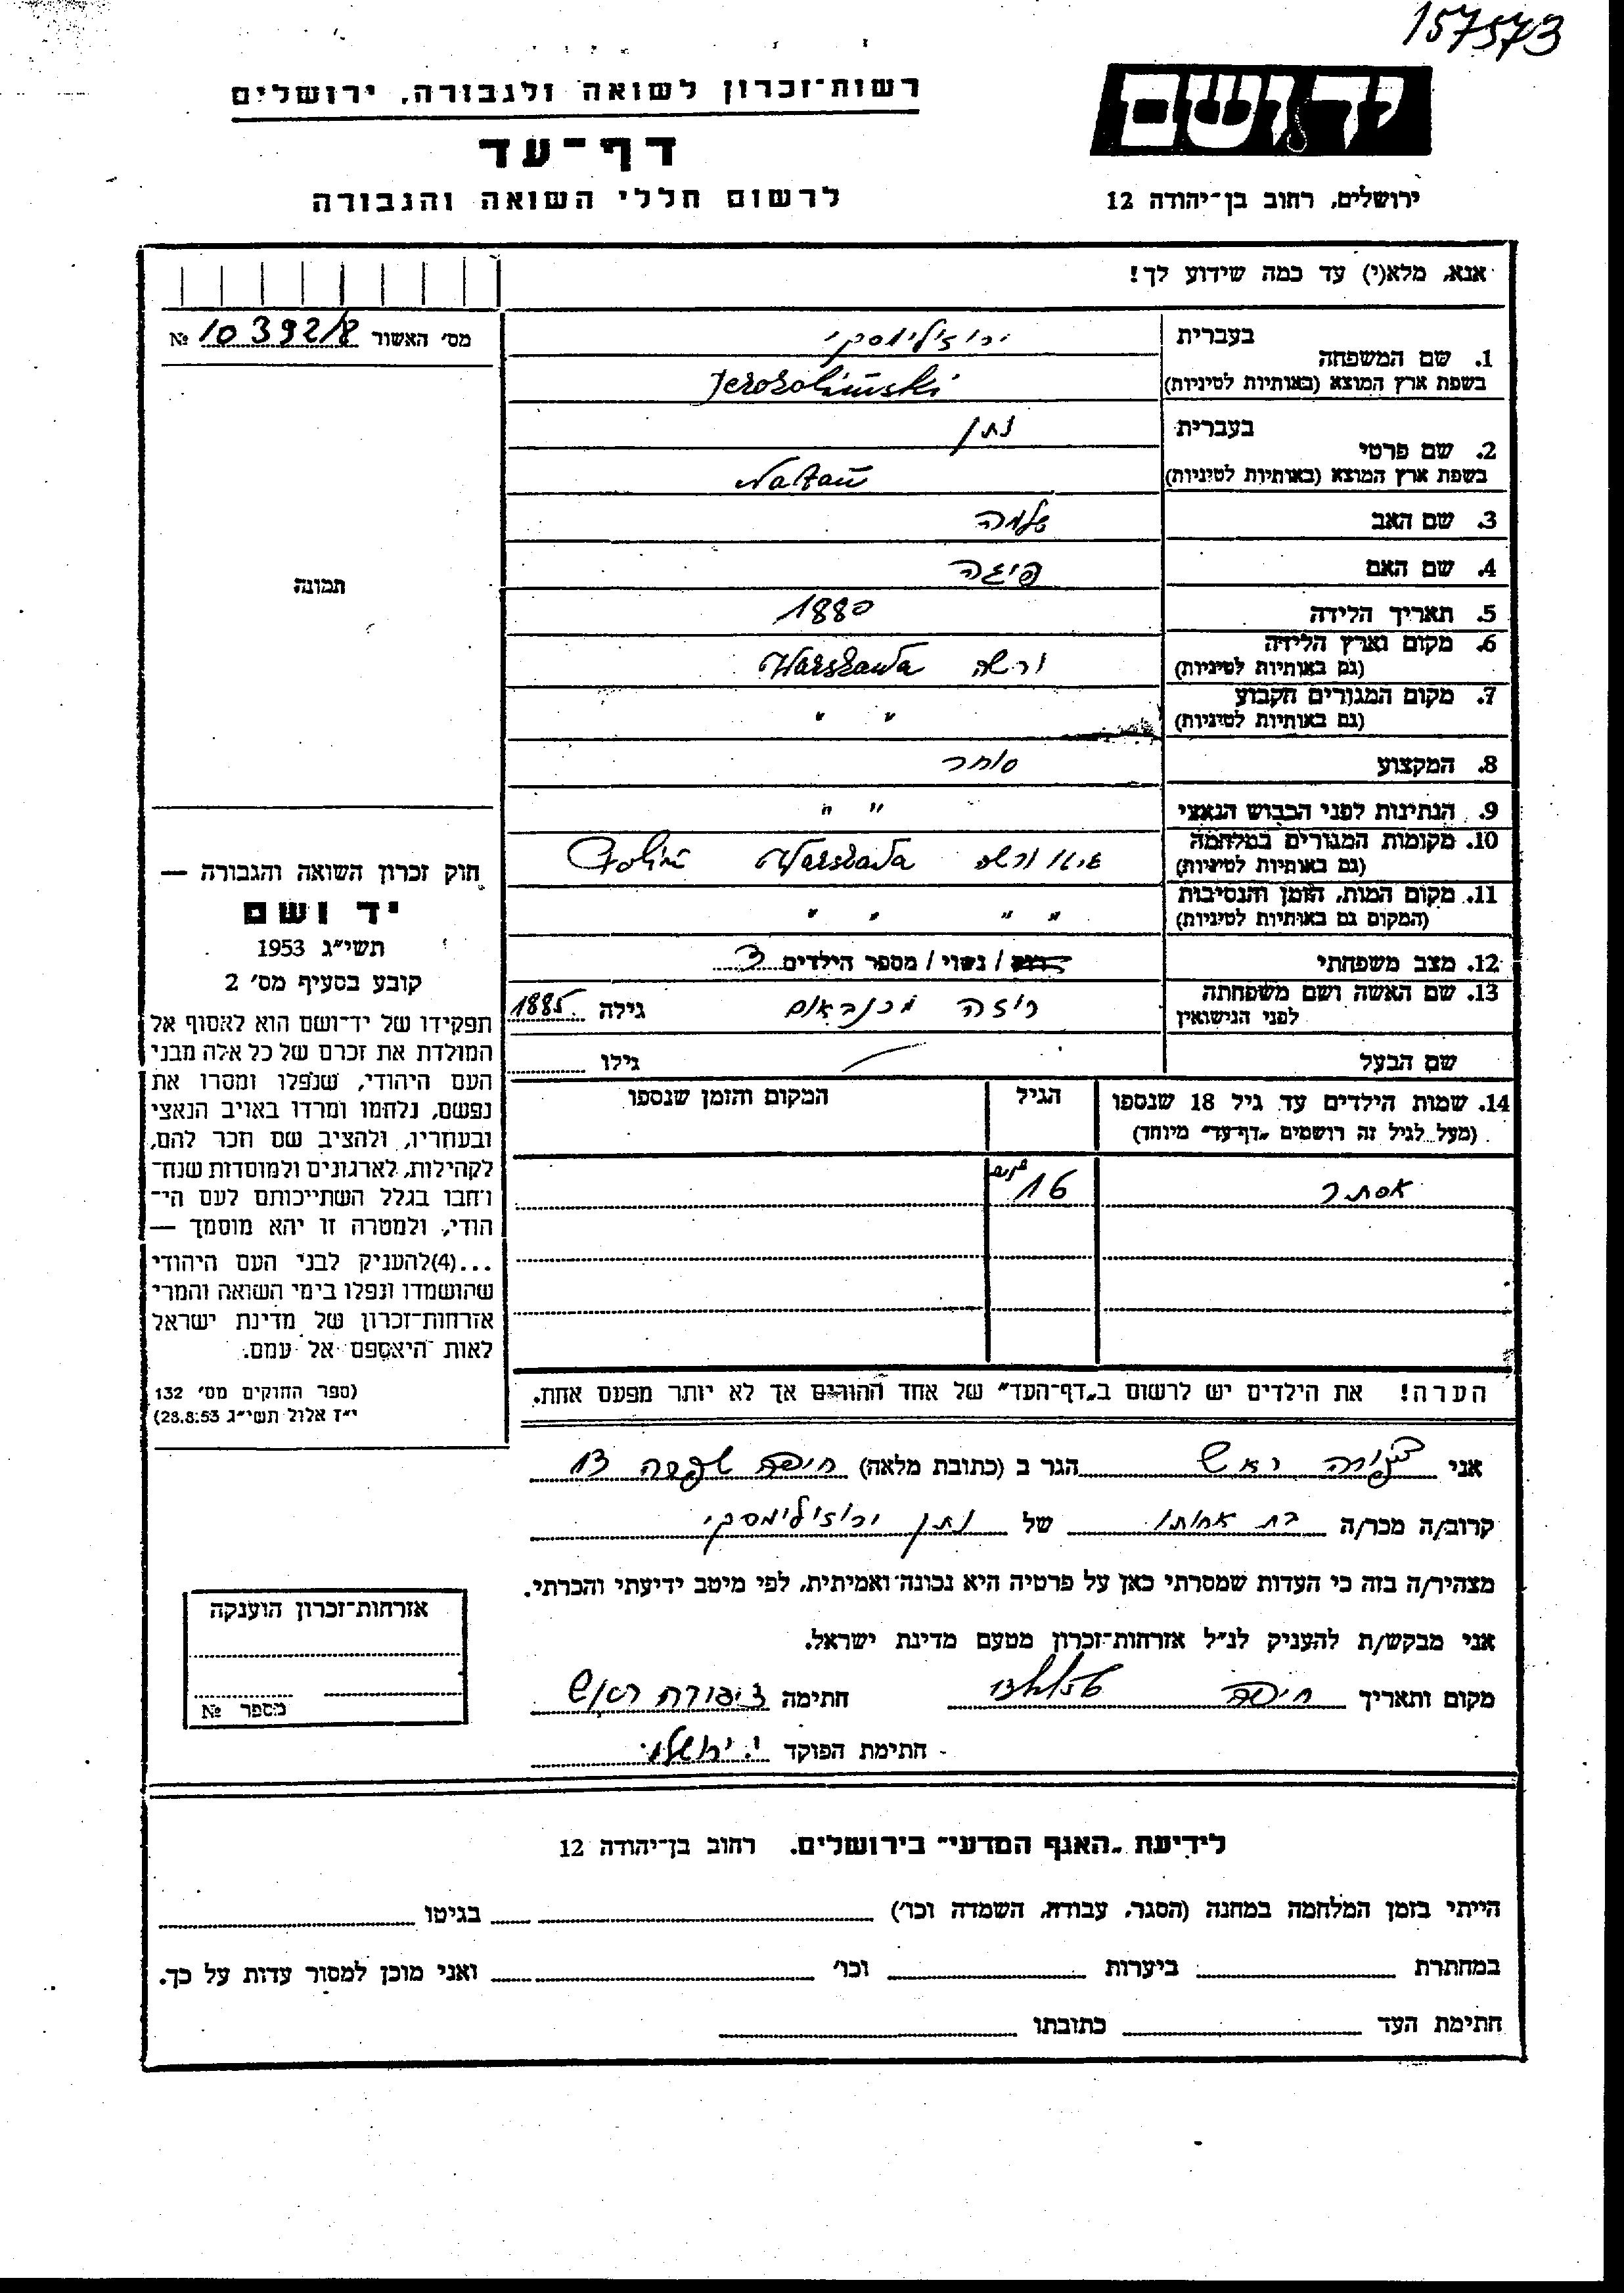 157573
יד ושם
רשות־זכרון לשואה ולגבורה, ירושלים
דף־עד
ירושלים, רחוב בן־יהודה 12
לרשום חללי השואה והגבורה
אנא, מלא(י) עד כמה שידוע לך!
מס׳ האשור 10392/8 №
1. שם המשפחה
בעברית ירוזלימסקי
בשפת ארץ המוצא (באותיות לטיניות) Jerozolimski
2. שם פרטי
בעברית נתן
בשפת ארץ המוצא (באותיות לטיניות) Natan
3. שם האב שלמה
4. שם האם פיגה
5. תאריך הלידה 1880
6. מקום וארץ הלידה
(גם באותיות לטיניות) ורשה Warszawa
7. מקום המגורים הקבוע
(גם באותיות לטיניות) " "
8. המקצוע סוחר
9. הנתינות לפני הכבוש הנאצי " "
10. מקומות המגורים במלחמה
(גם באותיות לטיניות) ורשה Warszawa Polin
11. מקום המות, הזמן והנסיבות
(המקום גם באותיות לטיניות) " " " "
12. מצב משפחתי רווק / נשוי / מספר הילדים 3
13. שם האשה ושם משפחתה
לפני הנישואין רוזה גילה 1885
שם הבעל גילו
14. שמות הילדים עד גיל 18 שנספו
(מעל לגיל זה רושמים „דף־עד״ מיוחד)
הגיל
המקום והזמן שנספו
אסתר 16
הערה! את הילדים יש לרשום ב„דף־העד״ של אחד ההורים אך לא יותר מפעם אחת.
תמונה
חוק זכרון השואה והגבורה —
יד ושם
תשי״ג 1953
קובע בסעיף מס׳ 2
תפקידו של יד־ושם הוא לאסוף אל
המולדת את זכרם של כל אלה מבני
העם היהודי, שנפלו ומסרו את
נפשם, נלחמו ומרדו באויב הנאצי
ובעוזריו, ולהציב שם וזכר להם,
לקהילות, לארגונים ולמוסדות שנח־
רבו בגלל השתייכותם לעם הי־
הודי, ולמטרה זו יהא מוסמך —
...(4)להעניק לבני העם היהודי
שהושמדו ונפלו בימי השואה והמרי
אזרחות־זכרון של מדינת ישראל
לאות היאספם אל עמם.
(ספר החוקים מס׳ 132
י״ז אלול תשי״ג 28.8.53)
אני צפורה ראש הגר ב (כתובת מלאה) חיפה 13
קרוב/ה מכר/ה בת אחותו של נתן ירוזלימסקי
מצהיר/ה בזה כי העדות שמסרתי כאן על פרטיה היא נכונה ואמיתית, לפי מיטב ידיעתי והכרתי.
אני מבקש/ת להעניק לנ״ל אזרחות־זכרון מטעם מדינת ישראל.
מקום ותאריך חיפה חתימה ציפורה ראש
חתימת הפוקד
אזרחות־זכרון הוענקה
מספר №
לידיעת „האגף המדעי״ בירושלים. רחוב בן־יהודה 12
הייתי בזמן המלחמה במחנה (הסגר, עבודה, השמדה וכו׳) בגיטו
במחתרת ביערות וכו׳ ואני מוכן למסור עדות על כך.
חתימת העד כתובתו